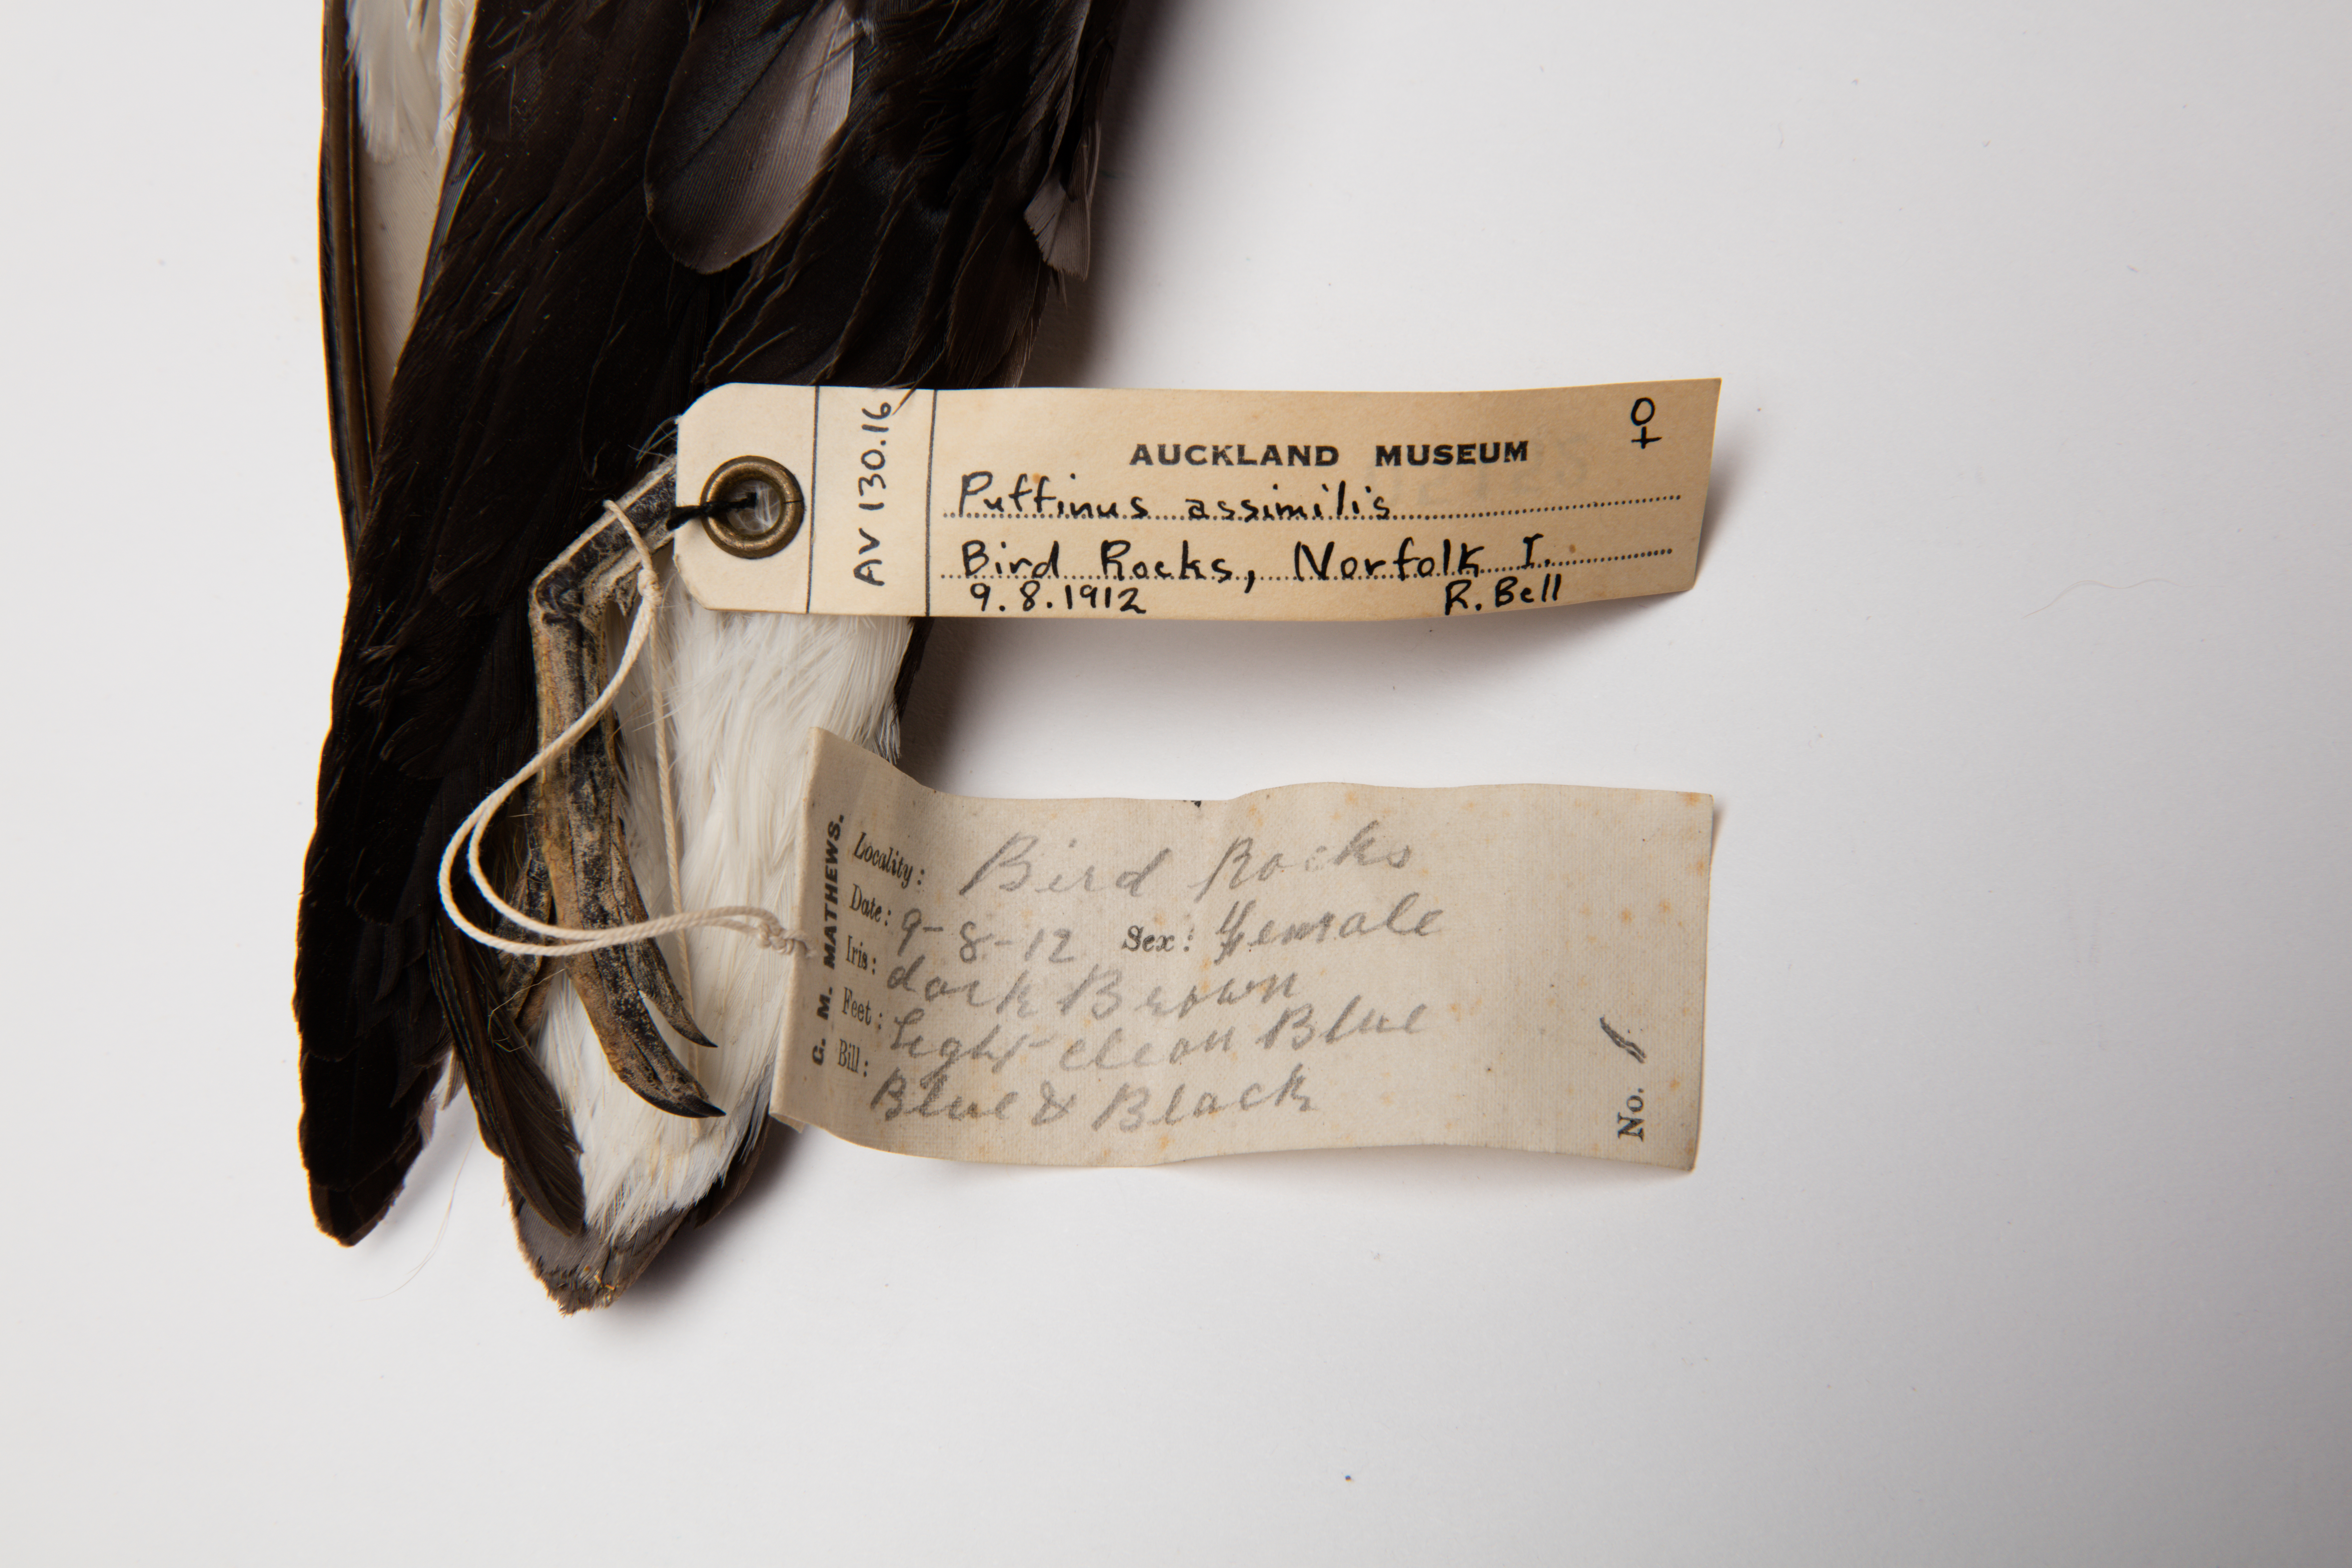 AUCKLAND MUSEUM
♀
AV 130.16
Puffinus assimilis
Bird Rocks, Norfolk I.
9.8.1912 R. Bell
G. M. MATHEWS.
Locality: Bird Rocks
Date: 9-8-12 Sex: Female
Iris: dark Brown
Feet: Light clean Blue
Bill: Blue & Black
No. 1